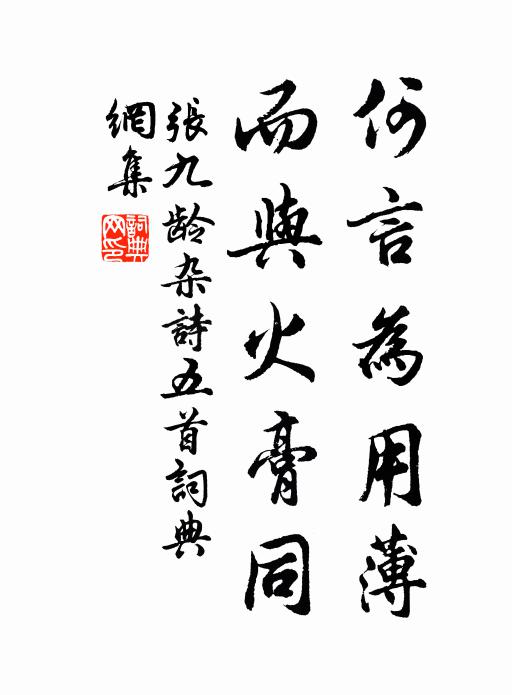 何言為用薄
而與火膏同
張九龄杂詩五首詞典
網集
詞典
网印